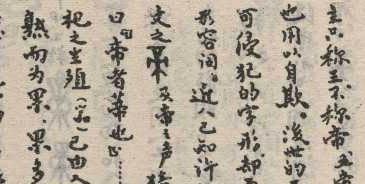 称王不称帝，五帝
也用以自欺。後世的
可侵犯的字形却
形容词。近人已知许
文之 帝之声
曰『帝者蒂也』……
祀之生殖 已由人
熟而为果，果多